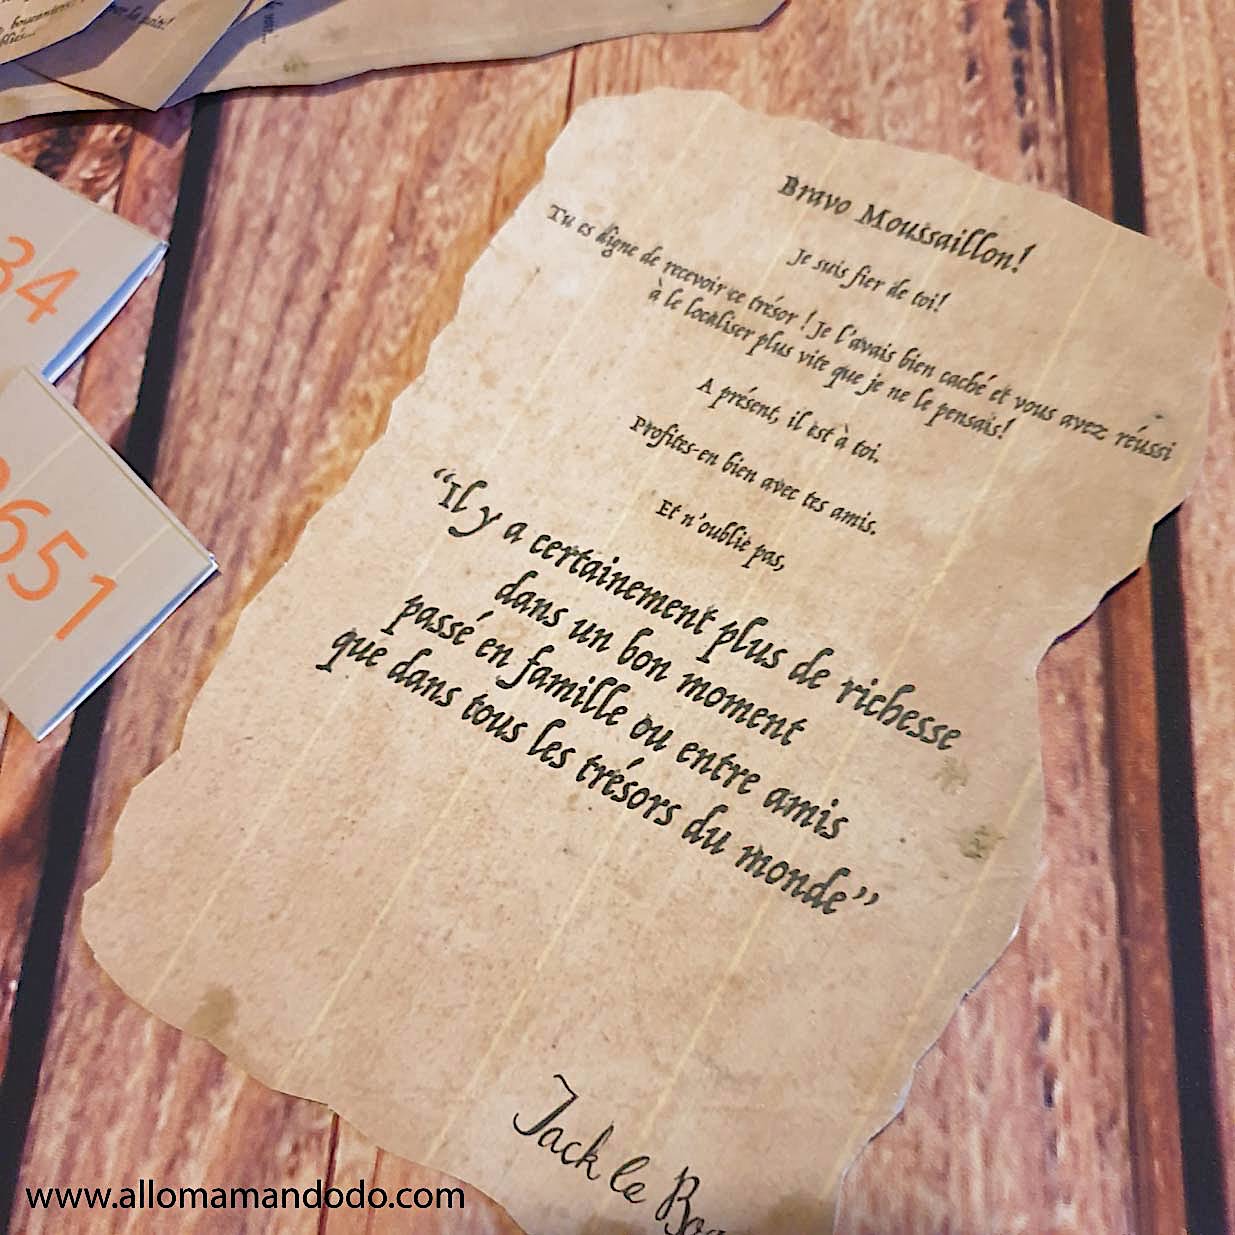 boucaniers
34
651
Bravo Moussaillon!
Je suis fier de toi!
Tu es digne de recevoir ce trésor ! Je l'avais bien caché et vous avez réussi
à le localiser plus vite que je ne le pensais!
A présent, il est à toi.
Profites-en bien avec tes amis.
Et n'oublie pas,
“Il y a certainement plus de richesse
dans un bon moment
passé en famille ou entre amis
que dans tous les trésors du monde”
Jack le
www.allomamandodo.com